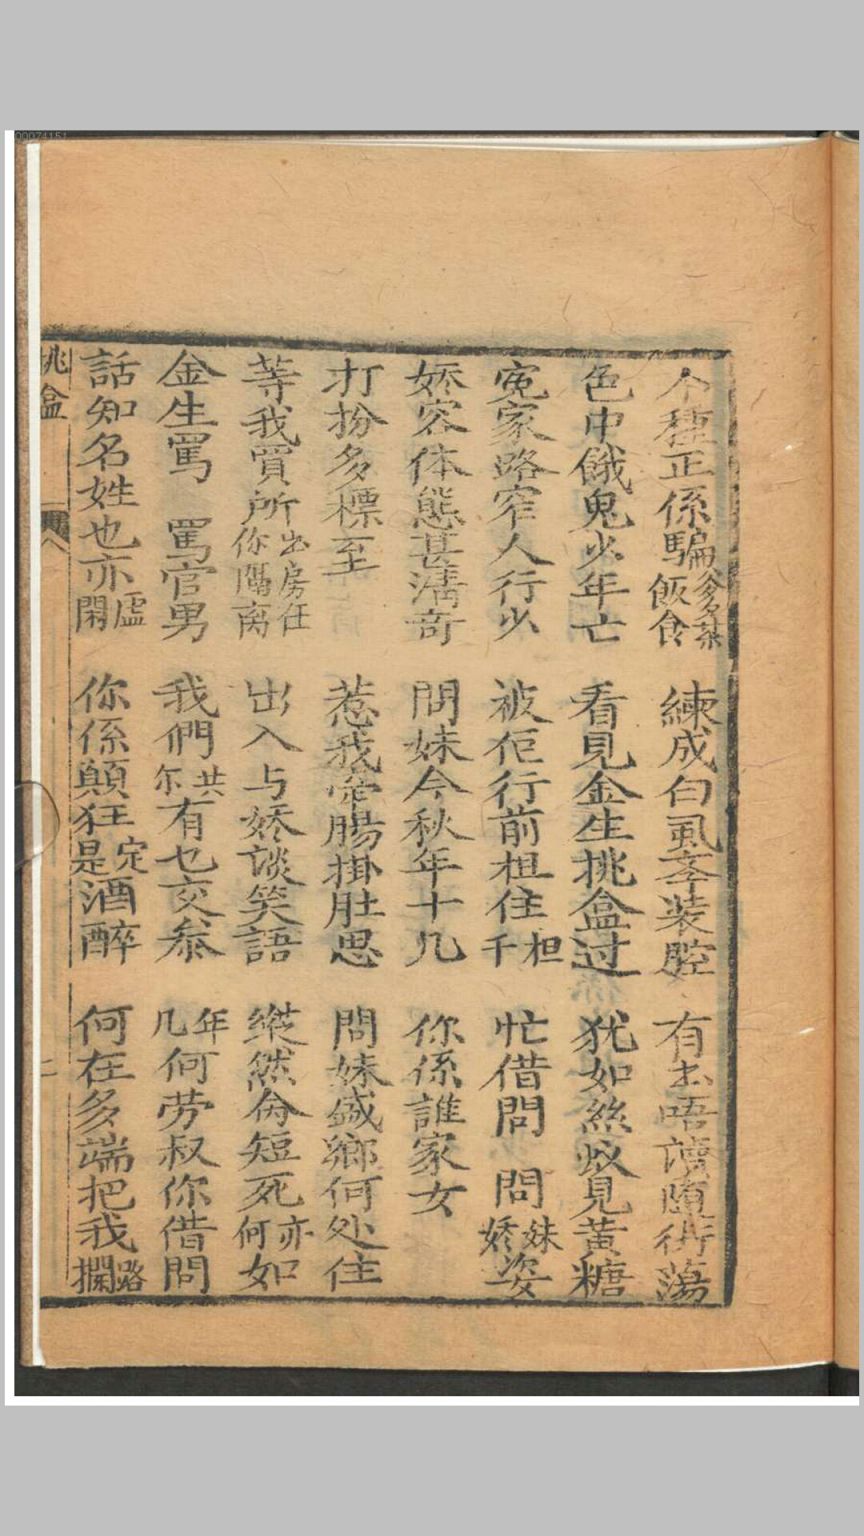 00074151
个種正係騙爹爹茶飯食 練成白虱夲装腔 有去唔讀墮街蕩
色中餓鬼少年亡 看見金生挑盒过 犹如絲蚁見黄糖
冤家路窄人行少 被佢行前柤住担千 忙借問 問妹嬌姿
娇容体態甚清奇 問妹今秋年十几 你係誰家女
打扮多標至 惹我牵腸掛肚思 問妹盛鄉何处住
等我買所出房任你隔离 出入与娇談笑語 縱然命短死亦何如
金生罵 罵官男 我們共尔有乜交叅 年几何劳叔你借問
話知名姓也亦虚閑 你係顛狂定是酒醉 何在多端把我路攔
挑盒
八
二